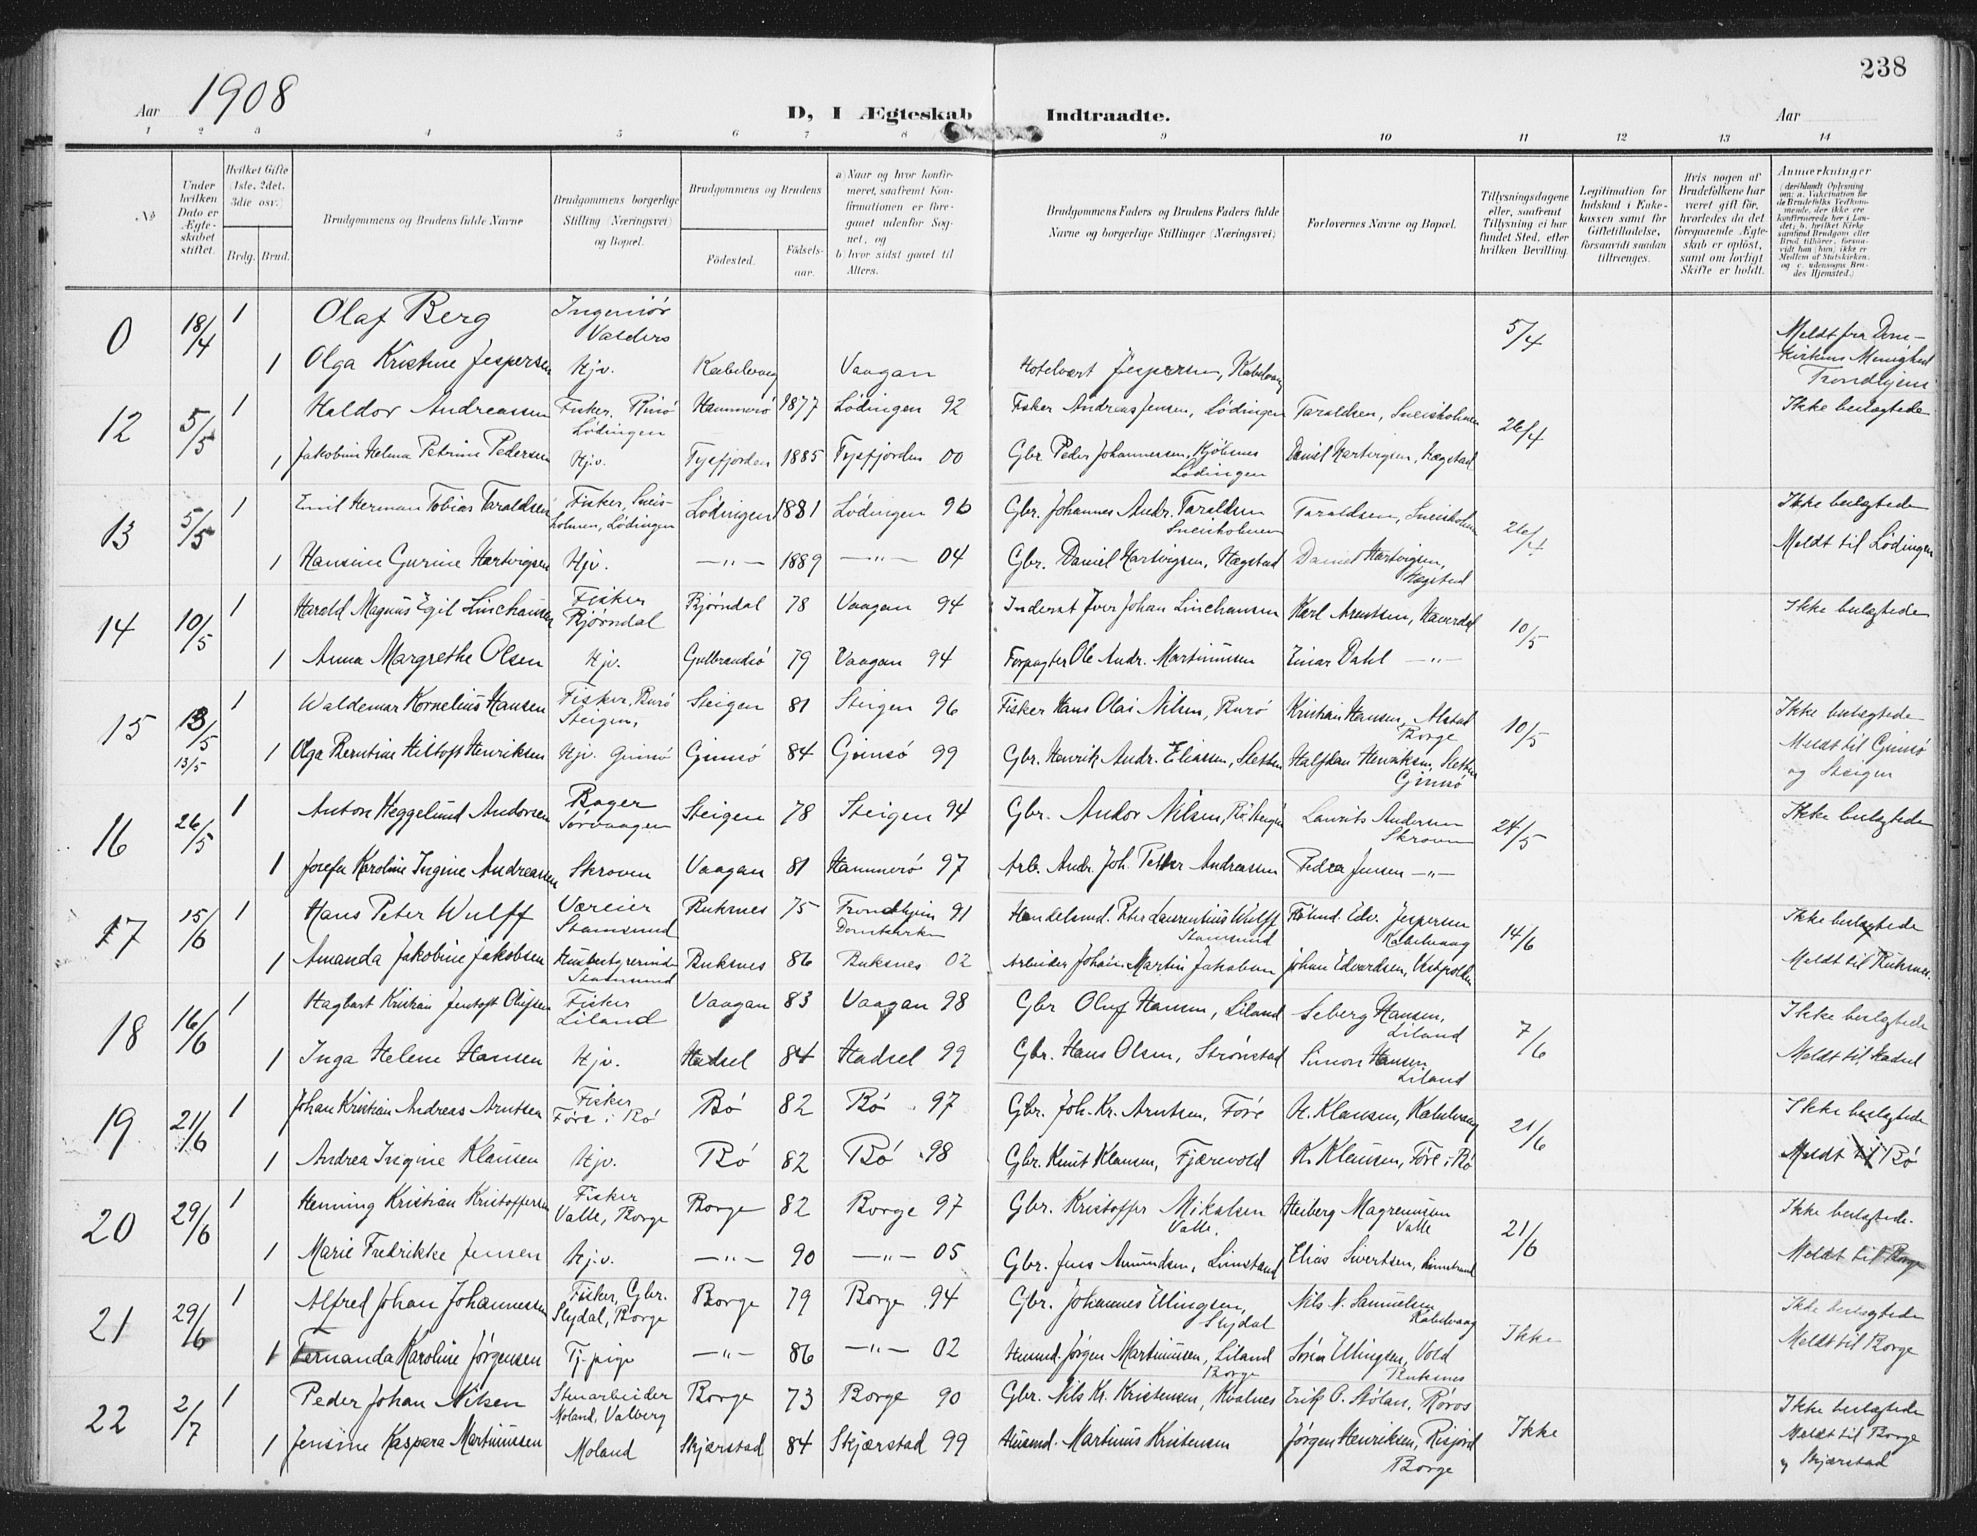 238
Aar 1908
D, I Ægteskab Indtraadte.
Aar
1 2 3 4 5 6 7 8 9 10 11 12 13 14
No
Under hvilken Dato er Ægteskabet stiftet.
Hvilket Gifte (1ste, 2det, 3die osv.)
Brdg. Brud.
Brudgommens og Brudens fulde Navne
Brudgommens borgerlige Stilling (Næringsvei) og Bopæl.
Brudgommens og Brudens
Födested. Födselsaar.
a) Naar og hvor konfirmeret, saafremt Konfirmationen er foregaaet udenfor Sognet, og
b) hvor sidst gaaet til Alters.
Brudgommens Faders og Brudens Faders fulde Navne og borgerlige Stillinger (Næringsvei)
Forlovernes Navne og Bopæl.
Tillysningsdagene eller, saafremt Tillysning ei har fundet Sted, efter hvilken Bevilling.
Legitimation for Indskud i Enkekassen samt for Giftetilladelse, forsaavidt saadan tiltrænges.
Hvis nogen af Brudefolkene har været gift för, hvorledes da det foregaaende Ægteskab er oplöst, samt om lovligt Skifte er holdt.
Anmærkninger
(deriblandt Oplysning om: a. Vakcination for de Brudefolks Vedkommende, der ikke ere konfirmerede her i Landet; b. hvilket Kirkesamfund Brudgom eller Brud tilhörer, forsaavidt han (hun) ikke er Medlem af Statskirken, og c. udensogns Brudes Hjemsted.)
0 18/4 1 Olaf Berg Ingeniör Valders 5/4 Meldt fra Domkirkens Menighed Trondhjem
1 Olga Kristine Jespersen Hjv. Kabelvaag Vaagan Hotelvært Jespersen, Kabelvaag
12 5/5 1 Haldor Andreassen Fisker, Rinö Lödingen Hammerö 1877 Lödingen 92 Fisker Andreas Jensen, Lödingen Taraldsen, Sneisholmen 26/4 Ikke beslægtede
1 Jakobine Helma Petrine Pedersen Hjv. Tysfjorden 1885 Tysfjorden 00 Gbr. Peder Johannessen, Kjöbsnes Lödingen Daniel Hartvigsen, Hægstad
13 5/5 1 Emil Herman Tobias Taraldsen Fisker, Sneisholmen, Lödingen Lödingen 1881 Lödingen 96 Gbr. Johannes Andr. Taraldsen Sneisholmen Taraldsen, Sneisholmen 26/4 Ikke beslægtede
1 Hansine Gurine Hartvigsen Hjv. —"— 1889 —"— 04 Gbr. Daniel Hartvigsen, Hægstad Daniel Hartvigsen, Hægstad Meldt til Lödingen
14 10/5 1 Harold Magnus Egil Linchausen Fisker Björndal Björndal 78 Vaagan 94 Inderst Iver Johan Linchausen Karl Arentsen, 10/5 Ikke beslægtede
1 Anna Margrethe Olsen Hjv. Gulbrandsö 79 Vaagan 94 Forpagter Ole Andr. Martinussen Einar Dahl —"—
15 13/5 13/5 1 Waldemar Kornelius Hansen Fisker, Burö Steigen, Steigen 81 Steigen 96 Fisker Hans Olai Nilsen, Burö Kristian Hansen, Alstad Borge 10/5 Ikke beslægtede
1 Olga Berntine Histoff Henriksen Hjv. Gimsö Gimsö 84 Gimsö 99 Gbr. Henrik Andr. Eliassen, Sletten Halfdan Henriksen, Sletten Gimsö Meldt til Gimsö og Steigen
16 26/5 1 Anton Heggelund Andorsen Bager Sörvaagen Steigen 78 Steigen 94 Gbr. Andor Nilsen, Bö, Steigen Laurits Andersen Skroven 24/5 Ikke beslægtede
1 Josefa Karoline Ingine Andreassen Skroven Vaagan 81 Hammerö 97 Arb. Andr. Joh. Petter Andreassen Pedea Jensen —"—
17 15/6 1 Hans Peter Wulff Væreier Stamsund Buksnes 75 Trondhjem Domkirken 91 Handelsmd. Peter Laurentius Wulff Stamsund Edv. Jespersen Kabelvaag 14/6 Ikke beslægtede
1 Amanda Jakobine Jakobsen Husbestyrerinde Stamsund Buksnes 86 Buksnes 02 Arbeider Johan Martin Jakobsen Johan Edvardsen, Vestpollen Meldt til Buksnes.
18 16/6 1 Hagbart Kristian Jentoft Olufsen Fisker Liland Vaagan 83 Vaagan 98 Gbr Oluf Hansen, Liland Seberg Hansen, Liland 7/6 Ikke beslægtede
1 Inga Helene Hansen Hjv. Hadsel 84 Hadsel 99 Gbr. Hans Olsen, Strönstad Simon Hansen Liland Meldt til Hadsel
19 21/6 1 Johan Kristian Andreas Arntsen Fisker Före i Bö Bö 82 Bö 97 Gbr. Joh. Kr. Arntsen, Före A. Klausen, Kabelvaag 21/6 Ikke beslægtede
1 Andrea Ingine Klausen Hjv. Bö 82 Bö 98 Gbr. Knut Klausen, Fjærevold K. Klausen, Före i Bö Meldt til Bö
20 29/6 1 Henning Kristian Kristoffersen Fisker Valle, Borge Borge 82 Borge 97 Gbr. Kristoffer Mikalsen Valle. Heiberg Magnussen Valle 21/6 Ikke beslægtede.
1 Marie Fredrikke Jensen Hjv. —"— 90 —"— 05 Gbr. Jens Amundsen, Limstand Elias Sivertsen, Limstrand Meldt til Borge
21 29/6 1 Alfred Johan Johannessen Fisker, Gbr. Slydal, Borge Borge 79 Borge 94 Gbr. Johannes Ellingsen, Slydal Nils N. Samuelsen Kabelvaag Ikke Ikke beslægtede
1 Fernanda Karoline Jörgensen Tj.pige —"— 86 —"— 02 Husmd. Jörgen Martinussen, Liland Borge Sören Ellingsen, Vold Buksnes Meldt til Borge
22 2/7 1 Peder Johan Nilsen Stenarbeider Moland, Valberg Borge 73 Borge 90 Gbr. Nils Kr. Kristensen, Kvalnes Erik O. Stölan, Röros Ikke Ikke beslægtede
1 Jensine Kaspara Martinussen Moland Skjærstad 84 Skjærstad 99 Husmd. Martinus Kristensen Jörgen Henriksen, Risjord Borge Meldt til Borge og Skjærstad